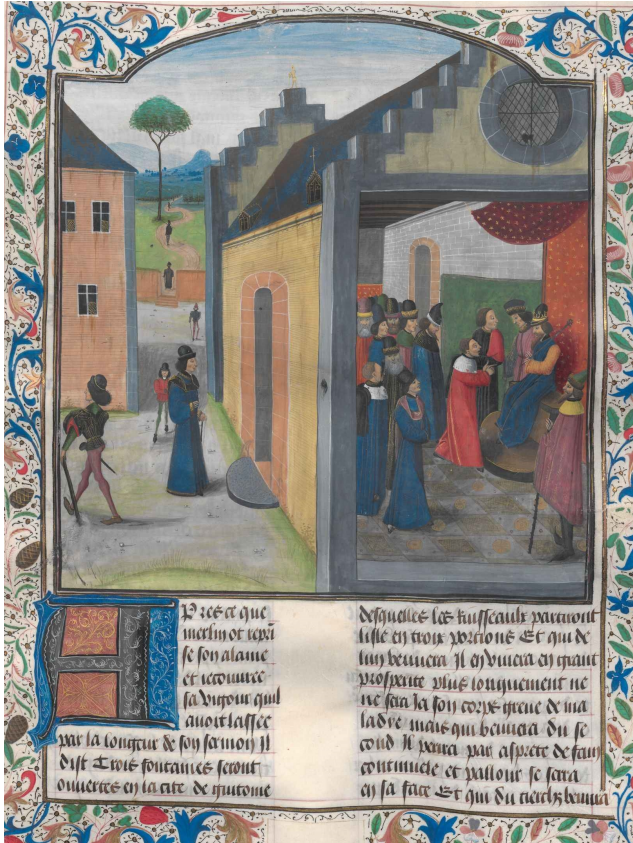 Apres ce que
merlin ot repri
se son alaine
et recouvree
sa vigour quil
auoit lassee
par la longeur de son sermon Il
dist Trois fontaines seront
ouuertes en la cite de guitome
desquelles les ruisseaulx partiront
lisle en trois porcions Et qui de
lun beuuera Il en viuera en grant
prosperite plus longuement ne
ne sera ja son corps greue de ma
ladie mais qui beuuera du se
cond Il perira par asprete de fain
continuele et pallour se sera
en sa face Et qui du tierch beuura